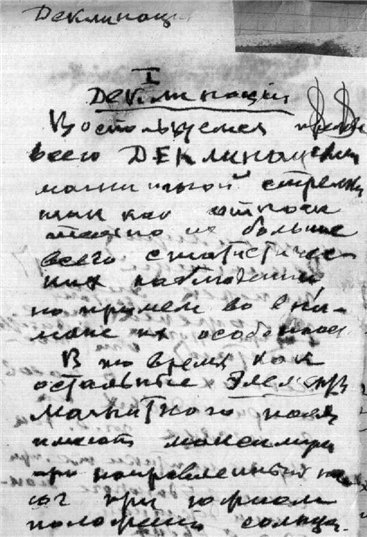 Деклинация
I
Деклинация
Воспользуемся прежде
всего ДЕКЛИНАЦией
магнитной стрелки
так как относи
тельно их больше
всего статистичес-
ких наблюдений
но примем во вни-
мание их особенность
В то время как
остальные Элементы
Магнитного поля
имеют максимум
при направлении на
юг при южном
положении солнца.